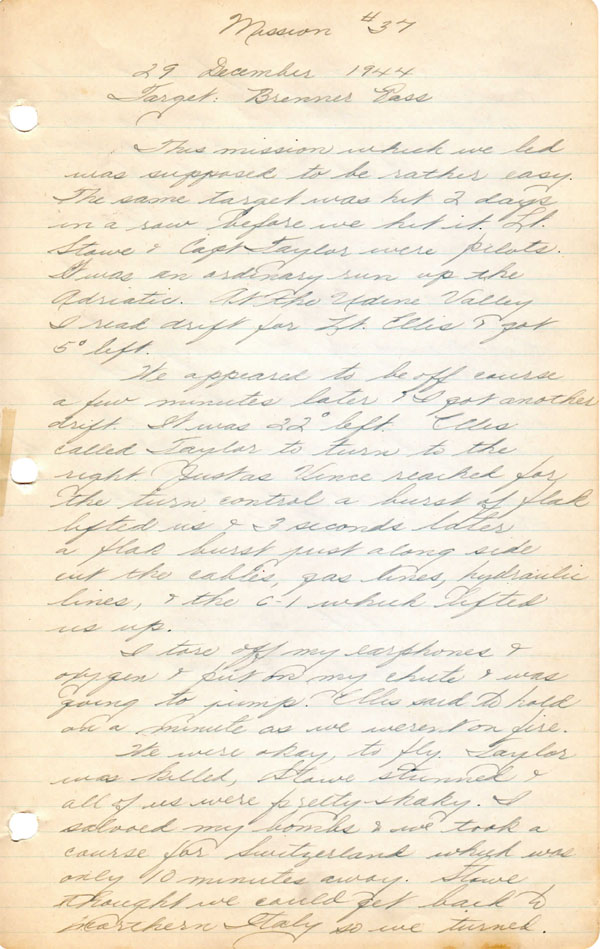 Mission #37
29 December 1944
Target: Brenner Pass
This mission which we led
was supposed to be rather easy.
The same target was hit 2 days
in a row before we hit it. Lt.
Stowe & Capt Taylor were pilots.
It was an ordinary run up the
Adriatic. At the Udine Valley
I read drift for Lt. Ellis & got
5° left.
We appeared to be off course
a few minutes later & I got another
drift. It was 22° left. Ellis
called Taylor to turn to the
right. Just as Vince reached for
the turn control a burst of flak
lifted us & 3 seconds later
a flak burst just along side
cut the cables, gas lines, hydraulic
lines, & the C-1 which lifted
us up.
I tore off my earphones &
oxygen & put on my chute & was
going to jump. Ellis said to hold
on a minute as we weren't on fire.
We were okay, to fly. Taylor
was killed, Stowe stunned &
all of us were pretty shaky. I
salvoed my bombs & we took a
course for Switzerland which was
only 10 minutes away. Stowe
thought we could get back to
northern Italy so we turned.